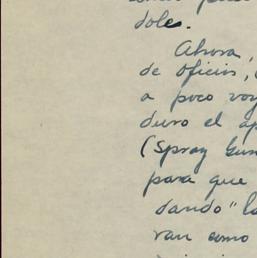 dole.
Ahora,
de oficios,
a poco voy
duro el ap
(Spray Gun
para que
dando" la
ran como